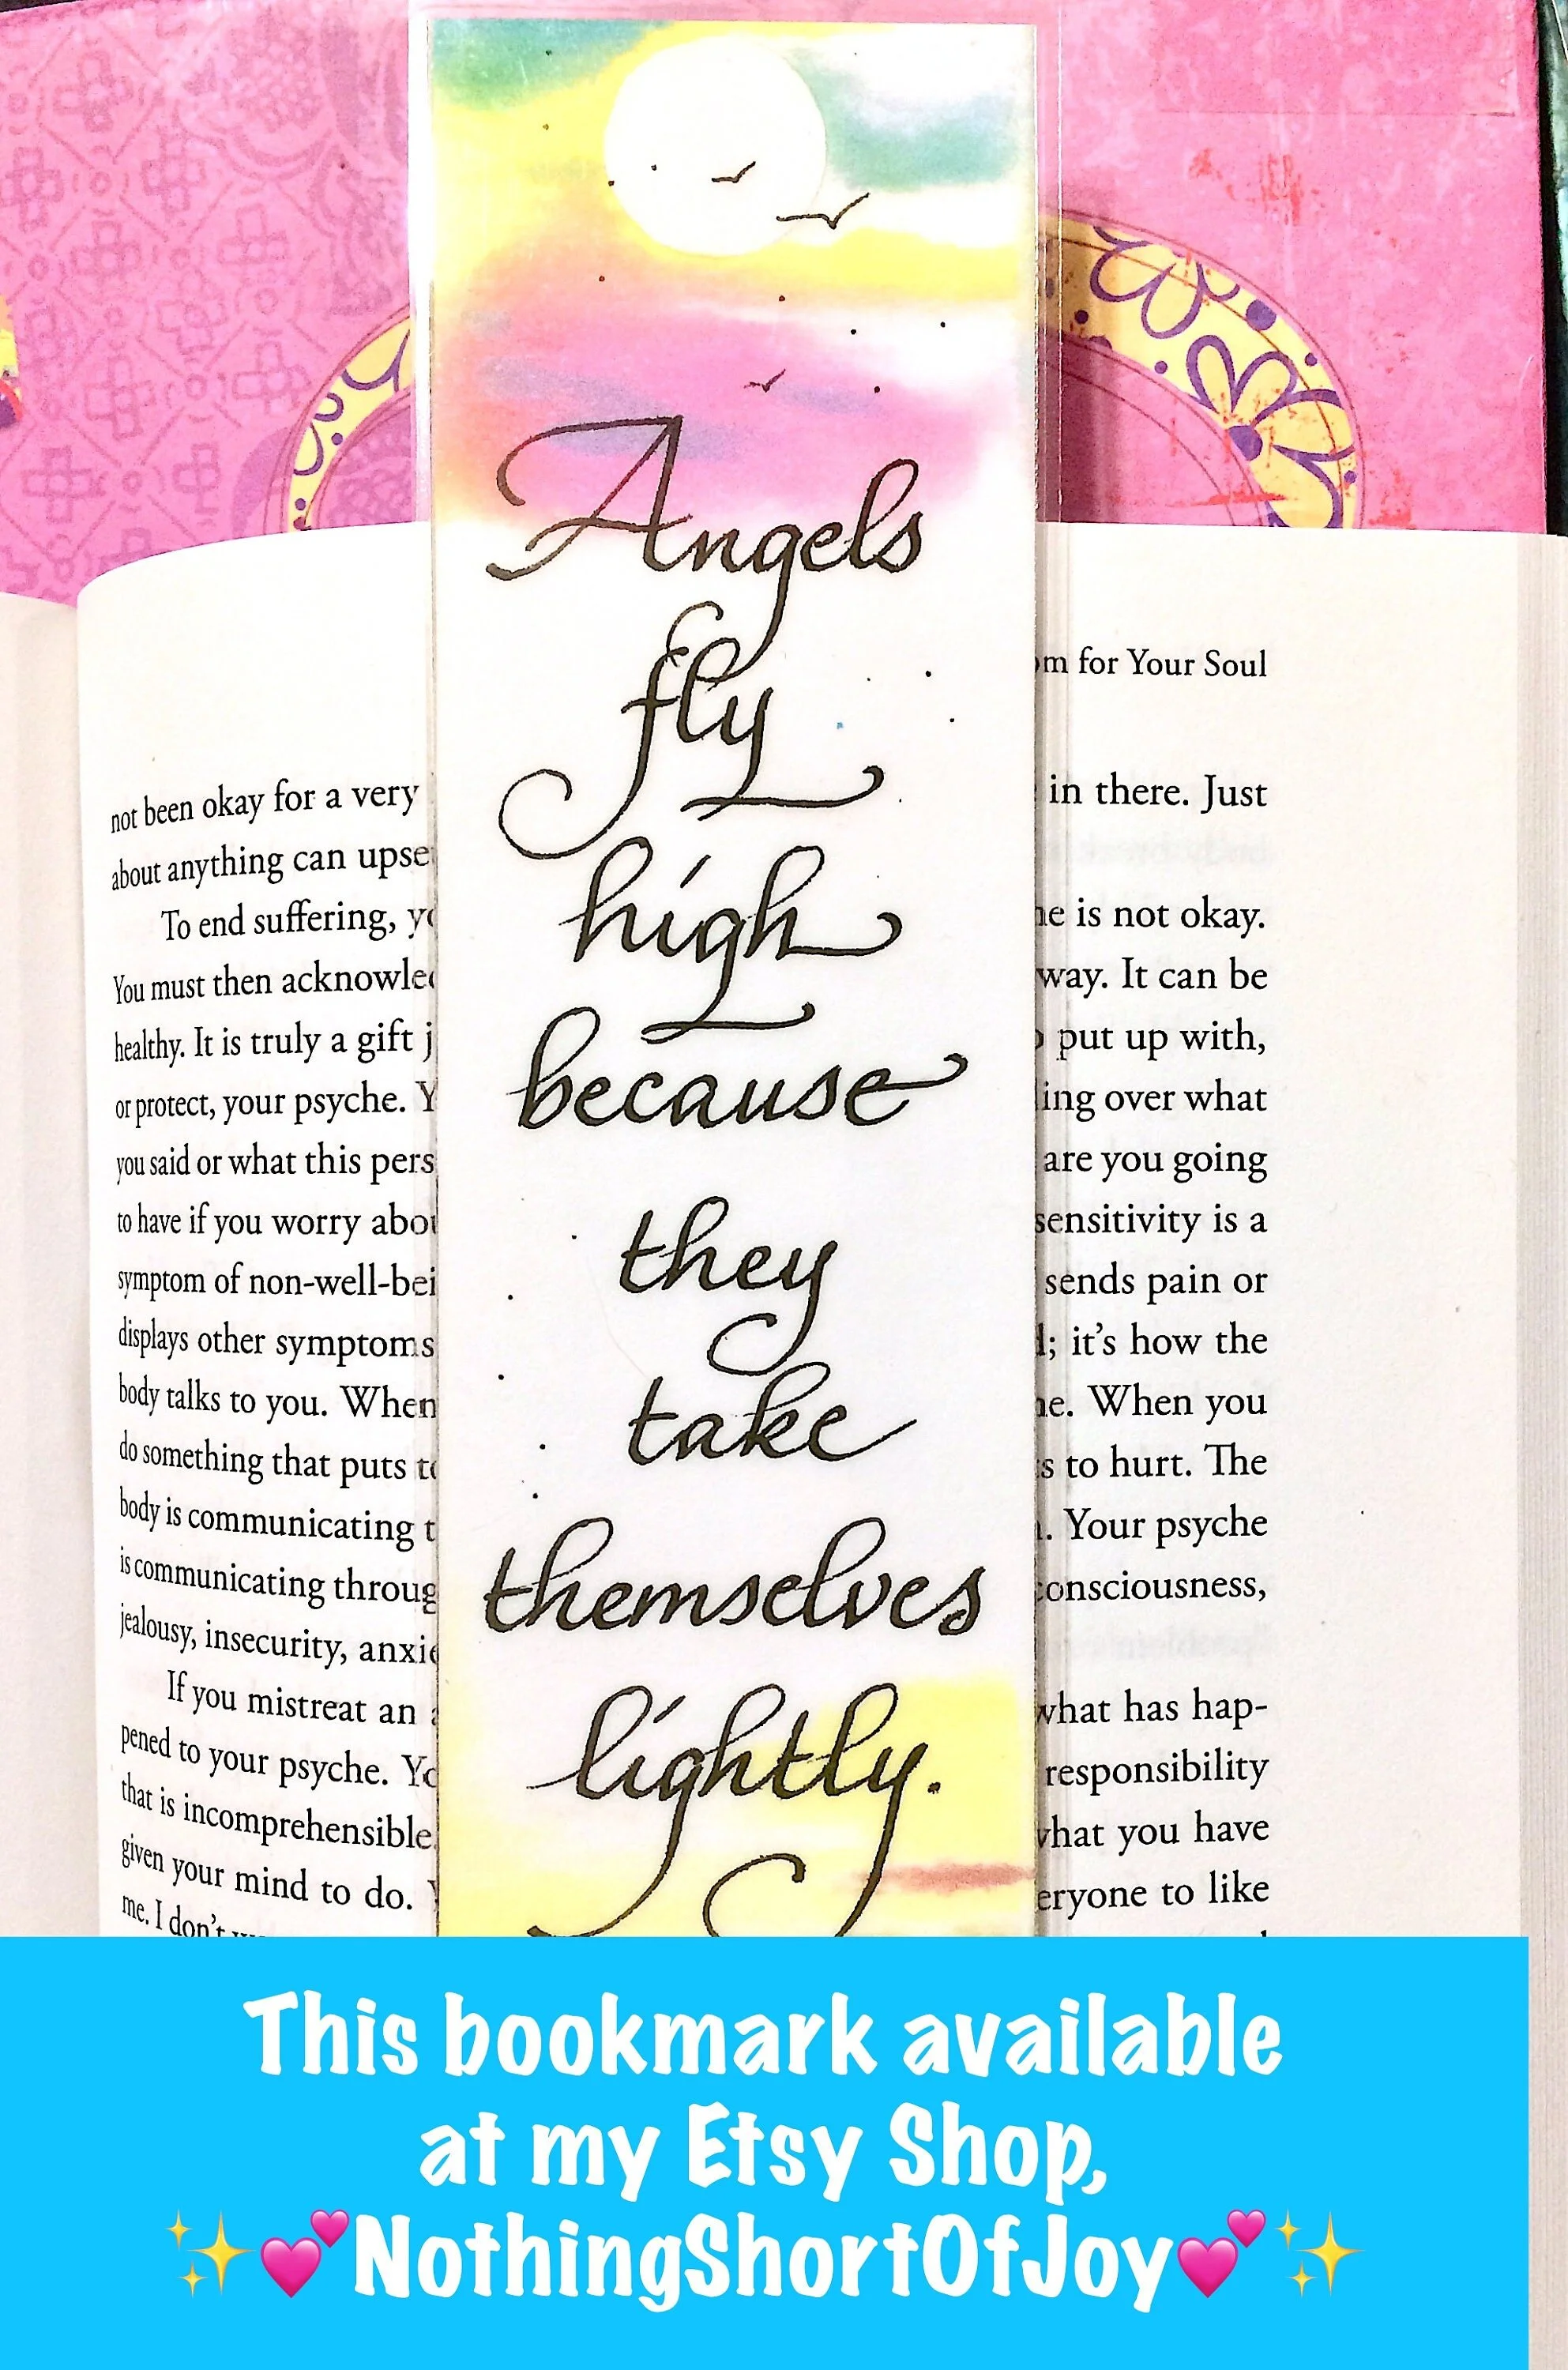 Angels
fly
high
because
they
take
themselves
lightly.
for Your Soul
not been okay for a very
in there. Just
about anything can
To end suffering,
is not okay.
You must then
way. It can be
healthy. It is truly a gift
put up with,
or protect, your psyche.
over what
you said or what this
are you going
to have if you worry
sensitivity is a
symptom of
sends pain or
displays other symptoms
it's how the
body talks to you. When
When you
do something that puts
to hurt. The
body is communicating
Your psyche
is communicating
consciousness,
jealousy, insecurity,
If you mistreat an
what has hap-
pened to your psyche.
responsibility
that is incomprehensible.
what you have
given your mind to do.
to like
me. I don't
This bookmark available
at my Etsy Shop,
✨💕NothingShortOfJoy💕✨